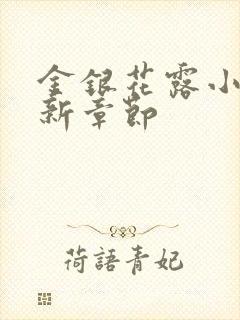 金銀花露小
新章節
荷語青妃